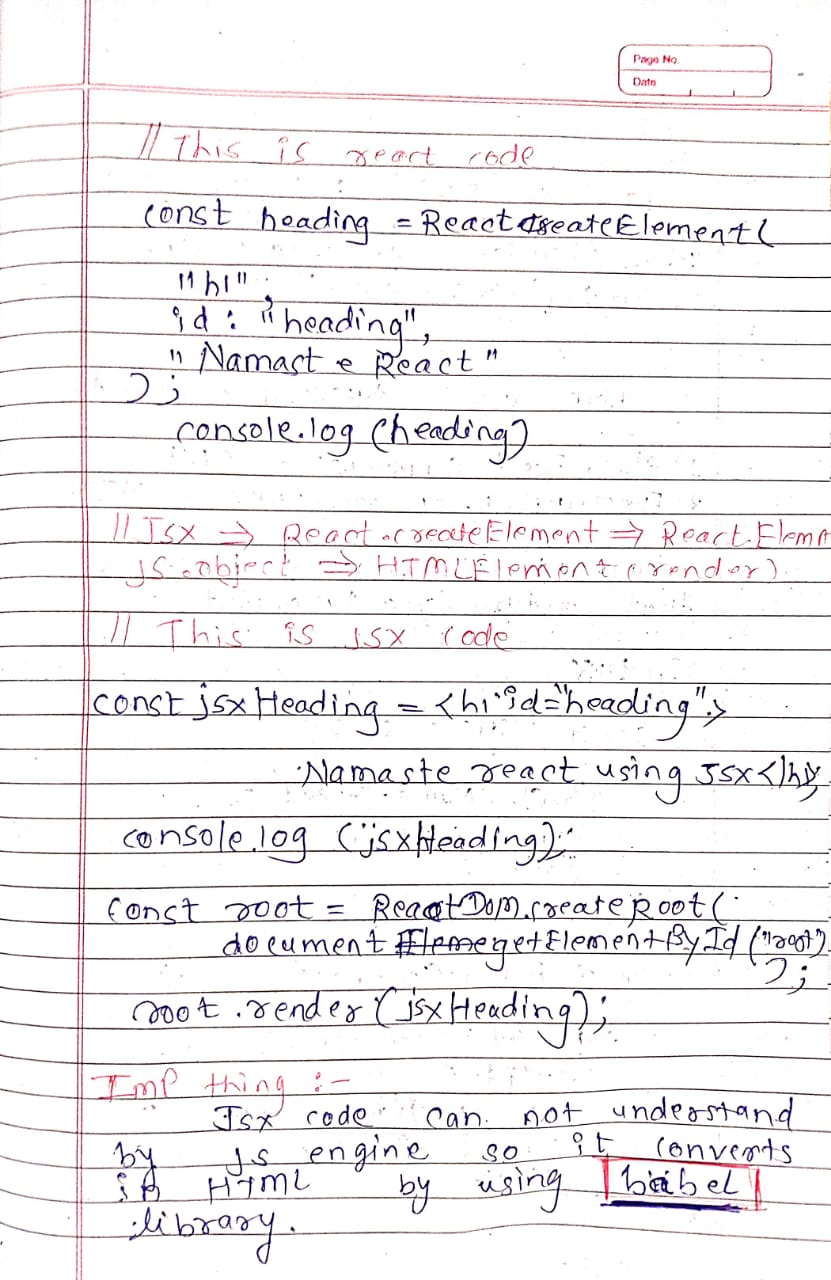 Page No.
Date
// This is react code
const heading = React createElement(
"h1",
id : "heading",
" Namaste React "
);
console.log (heading)
// JSX ⇒ React.createElement ⇒ React.Elem
JS.object ⇒ HTMLElement (render)
// This is JSX code
const jsxHeading = <h1 id="heading">
Namaste react using JSX</h1>;
console.log (jsxHeading);
const root = ReactDom.createRoot(
document getElementById ("root")
);
root.render (jsxHeading);
Imp thing :-
Jsx code can not understand
by Js engine so it converts
in HTML by using babel
library.